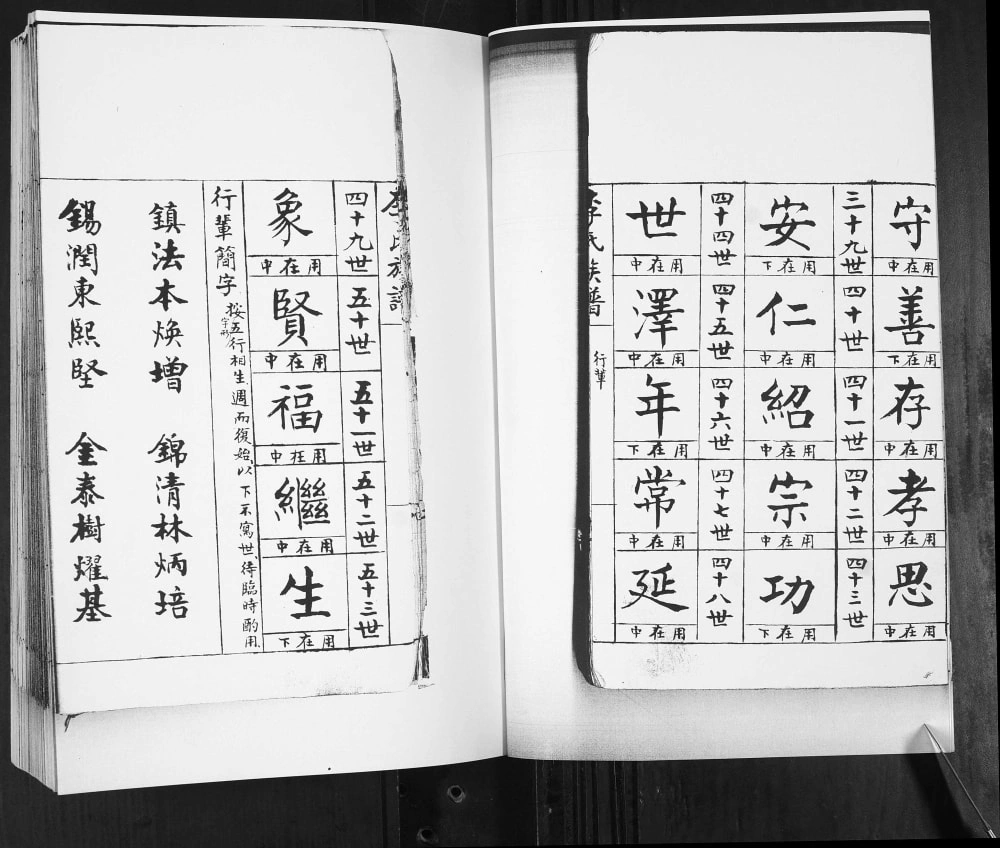 守 用在中 善 用在下 存 用在中 孝 用在中 思 用在中
三十九世 四十世 四十一世 四十二世 四十三世
安 用在下 仁 用在中 紹 用在中 宗 用在中 功 用在下
四十四世 四十五世 四十六世 四十七世 四十八世
世 用在中 澤 用在中 年 用在下 常 用在中 延 用在中
李氏族譜 行輩
李氏族譜
四十九世 五十世 五十一世 五十二世 五十三世
象 用在中 賢 用在中 福 用在中 繼 用在中 生 用在下
行輩簡字 按五行字形相生週而復始、以下不寫世、待臨時酌用
鎮法本煥增 錦清林炳培
錫潤東熙堅 金泰樹燿基